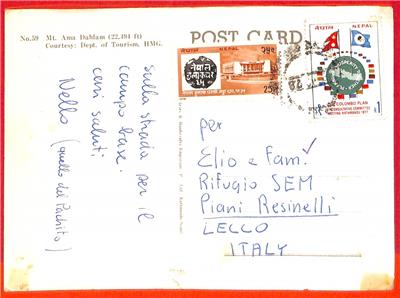 No.59 Mt. Ama Dablam (22,494 ft)
Courtesy: Dept. of Tourism, HMG.
POST CARD
Sulla strada per il
campo base.
cari saluti
Nello (quello del Pachito)
per
Elio e Fam.
Rifugio SEM
Piani Resinelli
LECCO
ITALY
नेपाल NEPAL
नेपाल NEPAL
COLOMBO PLAN